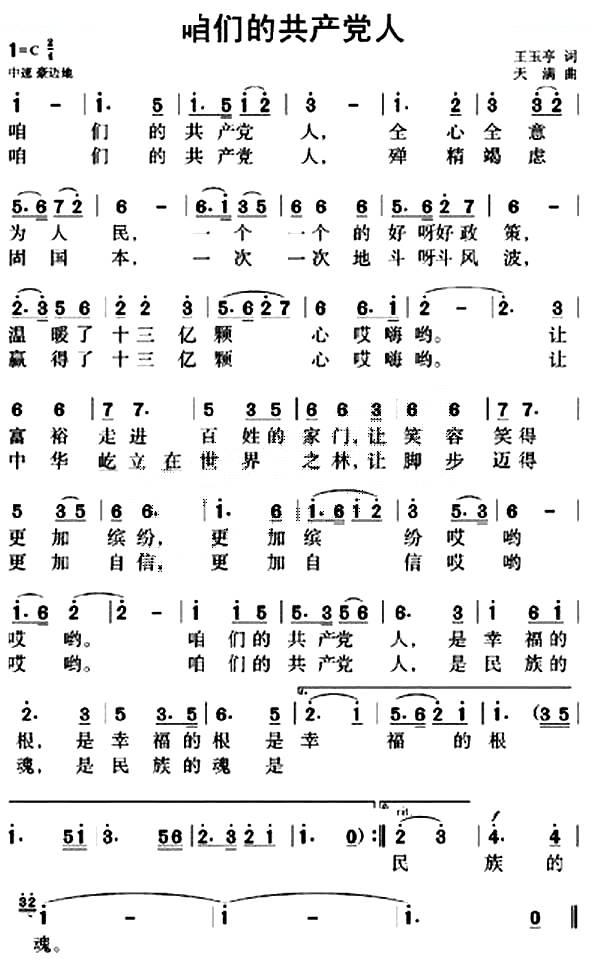 咱们的共产党人
1=C 2/4
王玉亭 词
中速 豪迈地
天 满 曲
i - | i. 5 | i. 5 i 2 | 3 - | i i | 3 3 2 |
咱 们 的 共 产党 人, 全 心 全 意
咱 们 的 共 产党 人, 殚 精 竭 虑
5. 6 7 2 | 6 - | 6. i 3 5 | 6 6 6 | 5. 6 2 7 | 6 - |
为 人 民, 一 个 一 个 的 好 呀好 政 策,
固 国 本, 一 次 一 次 地 斗 呀斗 风 波,
2. 3 5 6 | 2 2 3 | 5. 6 2 7 | 6 6. i | 2 - | 2. 3 |
温 暖 了 十 三 亿 颗 心 哎 嗨 哟。 让
赢 得 了 十 三 亿 颗 心 哎 嗨 哟。 让
6 6 | 7 7. | 5 3 5 | 6 6 3 | 6 6 | 7 7. |
富 裕 走 进 百 姓 的 家 门, 让 笑 容 笑 得
中 华 屹 立 在 世 界 之 林, 让 脚 步 迈 得
5 3 5 | 6 6. | i. 6 | i. 6 i 2 | 3 5. 3 | 6 - |
更 加 缤 纷, 更 加 缤 纷 哎 哟
更 加 自 信, 更 加 自 信 哎 哟
i. 6 2 | 2 - | i i 5 | 5. 3 5 6 | 6. 3 | i 6 i |
哎 哟。 咱 们 的 共 产党 人, 是 幸 福 的
哎 哟。 咱 们 的 共 产党 人, 是 民 族 的
1.
2. 3 | 5 3. 5 | 6. 3 | 2. i | 5. 6 2 i | i. (3 5 |
根, 是 幸 福 的 根 是 幸 福 的 根
魂, 是 民 族 的 魂 是
2. rit. f
i. 5 i | 3. 5 6 | 2. 3 2 i | i. 0) :|| 2 3 | 4. 4 |
民 族 的
3 2 i - | i - | i - | i. 0 ||
魂。